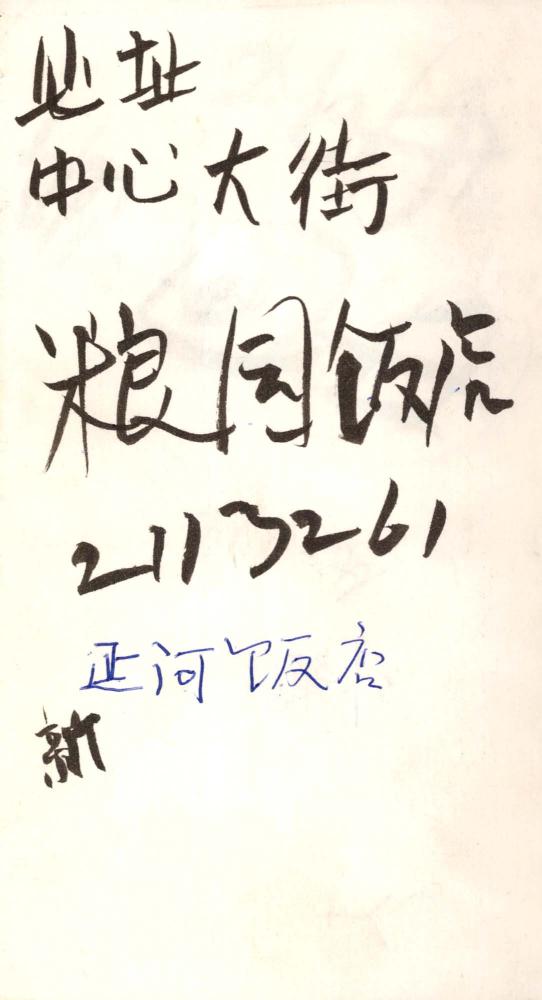 地址
中心大街
粮园饭店
2113261
延河饭店
新